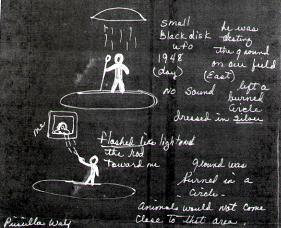 small
Black disk
UFO
1948
(day)
No Sound
he was
testing
the ground
on air field
(East)
left a
burned
Circle
dressed in silver
me
flashed like light and
the rod
Toward me
ground was
burned in a
Circle.
Animals would not come
Close to that area.
Priscilla